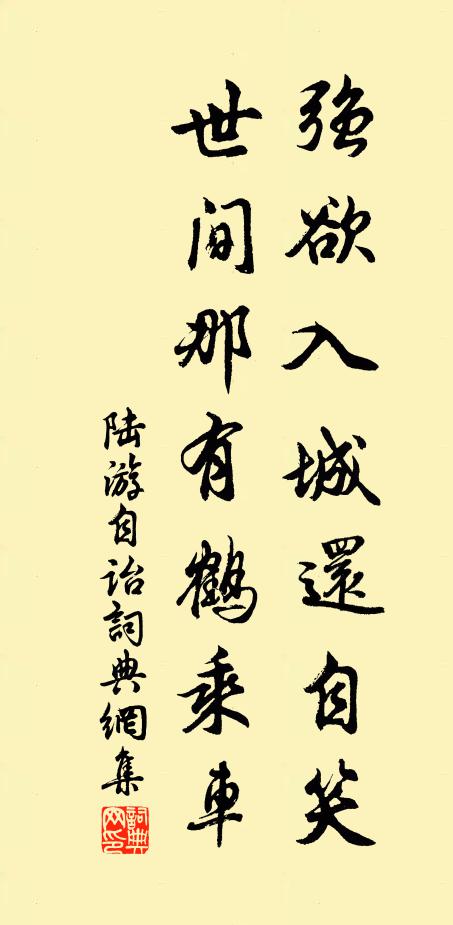 強欲入城還自笑
世间那有鶴乘車
陆游自诒詞典網集
詞典网印